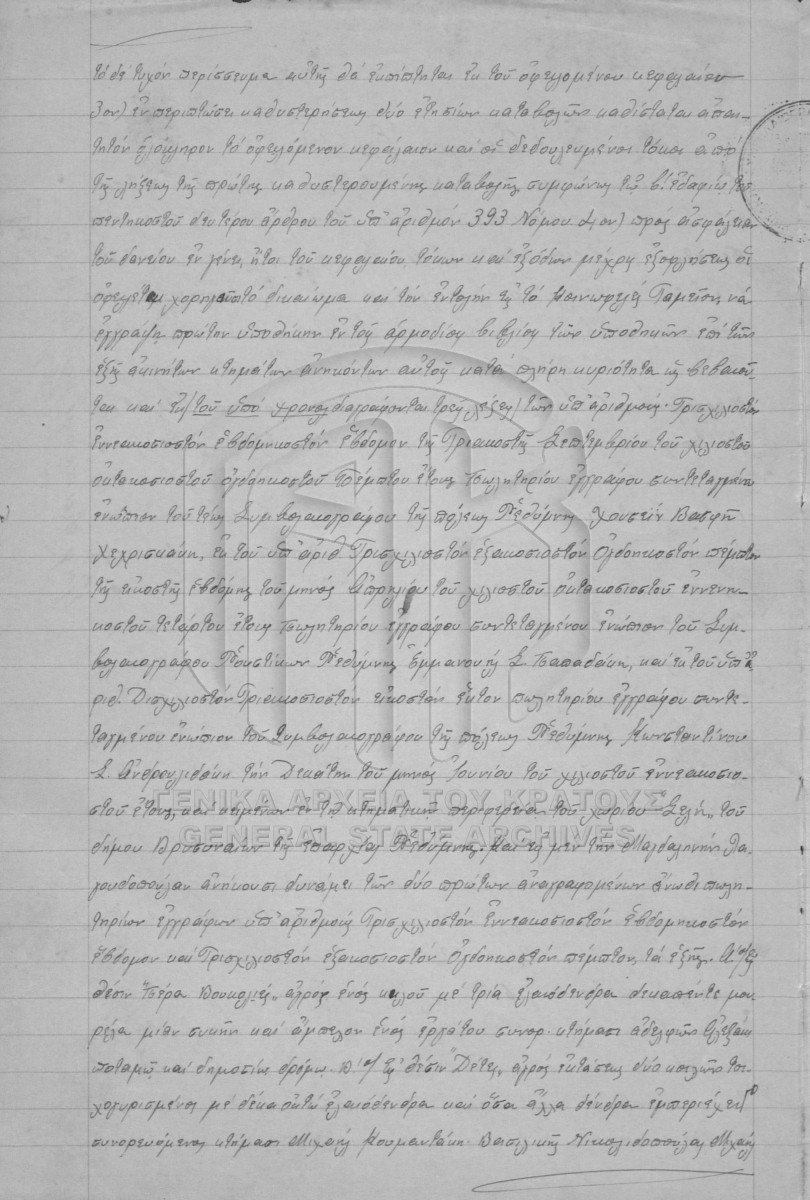 τὸ δὲ τυχὸν περίσσευμα αὐτῆς θὰ ἐκπίπτηται ἐκ τοῦ ὀφειλομένου κεφαλαίου
3ον) ἐν περιπτώσει καθυστερήσεως δύο ἐτησίων καταβολῶν καθίσταται ἀπαι-
τητὸν ὁλόκληρον τὸ ὀφειλόμενον κεφάλαιον καὶ οἱ δεδουλευμένοι τόκοι ἀπὸ
τῆς λήξεως τῆς πρώτης καθυστερουμένης καταβολῆς συμφώνως τῷ β. ἐδαφίῳ τοῦ
πεντηκοστοῦ δευτέρου ἄρθρου τοῦ ὑπ' ἀριθμὸν 393 Νόμου 4ον) πρὸς ἀσφάλειαν
τοῦ δανείου ἐν γένει, ἤτοι τοῦ κεφαλαίου, τόκων καὶ ἐξόδων μέχρις ἐξοφλήσεως οἱ
ὀφειλέται χορηγοῦσι τὸ δικαίωμα καὶ τὴν ἐντολὴν εἰς τὸ Κοινωφελὲς Ταμεῖον νὰ
ἐγγράψῃ πρώτην ὑποθήκην ἐν τοῖς ἁρμοδίοις βιβλίοις τῶν ὑποθηκῶν ἐπὶ τῶν
ἑξῆς ἀκινήτων κτημάτων ἀνηκόντων αὐτοῖς κατὰ πλήρη κυριότητα ὡς βεβαιοῦ-
ται καὶ ἐκ/τοῦ ὑπὸ χρονολ διαγράφονται τρεῖς λέξεις/ τῶν ὑπ' ἀριθμοὺς Τρισχιλιοστὸν
ἐννεακοσιοστὸν ἑβδομηκοστὸν ἕβδομον τῆς Τριακοστῆς Σεπτεμβρίου τοῦ χιλιοστοῦ
ὀκτακοσιοστοῦ ὀγδοηκοστοῦ Πέμπτου ἔτους Πωλητηρίου ἐγγράφου συντεταγμένου
ἐνώπιον τοῦ τέως Συμβολαιογράφου τῆς πόλεως Ῥεθύμνης Χουσεΐν Βασφῆ
Χεχρισκάκη, ἐκ τοῦ ὑπ' ἀριθ Τρισχιλιοστὸν ἑξακοσιοστὸν Ὀγδοηκοστὸν πέμπτον
τῆς εἰκοστῆς ἑβδόμης τοῦ μηνὸς Ἀπριλίου τοῦ χιλιοστοῦ ὀκτακοσιοστοῦ ἐννενη-
κοστοῦ τετάρτου ἔτους Πωλητηρίου ἐγγράφου συντεταγμένου ἐνώπιον τοῦ Συμ-
βολαιογράφου Ῥουστίκων Ῥεθύμνης Ἐμμανουὴλ Σ. Παπαδάκη, καὶ ἐκ τοῦ ὑπ' ἀ-
ριθ. Δισχιλιοστὸν Τριακοσιοστὸν εἰκοστὸν ἕκτον πωλητηρίου ἐγγράφου συντε-
ταγμένου ἐνώπιον τοῦ Συμβολαιογράφου τῆς πόλεως Ῥεθύμνης Κωνσταντίνου
Σ. Ἀνδρουλιδάκη τὴν Δεκάτην τοῦ μηνὸς Ἰουνίου τοῦ χιλιοστοῦ ἐννεακοσιο-
στοῦ ἔτους, καὶ κειμένων ἐν τῇ κτηματικῇ περιφερείᾳ τοῦ χωρίου "Σελλὴ" τοῦ
ΓΕΝΙΚΑ ΑΡΧΕΙΑ ΤΟΥ ΚΡΑΤΟΥΣ
GENERAL STATE ARCHIVES
δήμου Βρυσιναίων τῆς ἐπαρχίας Ῥεθύμνης. Καὶ εἰς μὲν τὴν Μαγδαληνὴν
ἀνήκουσι δυνάμει τῶν δύο πρώτων ἀναγραφομένων ἄνωθι πωλη-
τηρίων ἐγγράφων ὑπ' ἀριθμοὺς Τρισχιλιοστὸν ἐννεακοσιοστὸν ἑβδομηκοστὸν
ἕβδομον καὶ Τρισχιλιοστὸν ἑξακοσιοστὸν Ὀγδοηκοστὸν πέμπτον, τὰ ἑξῆς. Α'/ εἰς
θέσιν "Πέρα " ἀγρὸς ἑνὸς κοιλοῦ μὲ τρία ἐλαιόδενδρα δεκαπέντε μου-
ρέλα μίαν συκῆν καὶ ἄμπελον ἑνὸς ἐργάτου συνορ. κτήμασι ἀδελφῶν
ποταμῷ καὶ δημοσίῳ δρόμῳ. Β'/ εἰς θέσιν "Δέτες" ἀγρὸς ἐκτάσεως δύο κοιλῶν τοι-
χογυρισμένος μὲ δέκα ὀκτὼ ἐλαιόδενδρα καὶ ὅσα ἄλλα δένδρα ἐμπεριέχει
συνορευόμενος κτήμασι Μιχαὴλ Κουμαντάκη Βασιλικῆς Νικολιδοπούλας Μιχαὴλ